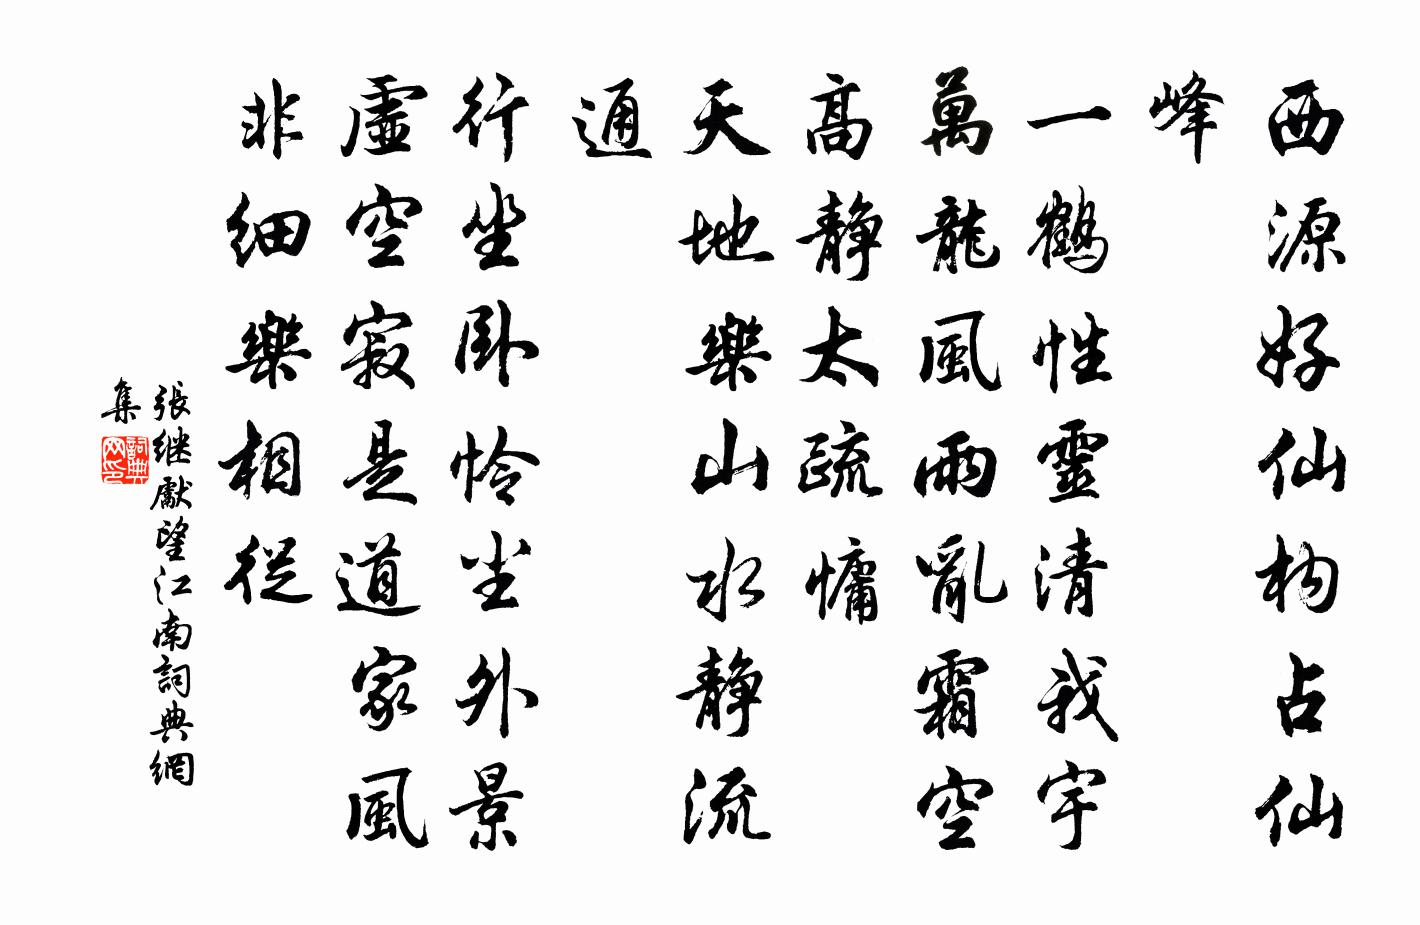 西源好仙构占仙
峰
一鶴性靈清我宇
萬龍風雨亂霜空
髙静太疏慵
天地樂山水静流
通
行坐卧怜坐外景
虚空寂是道家風
非细樂相從
張继獻望江南詞典網
集
詞典網印